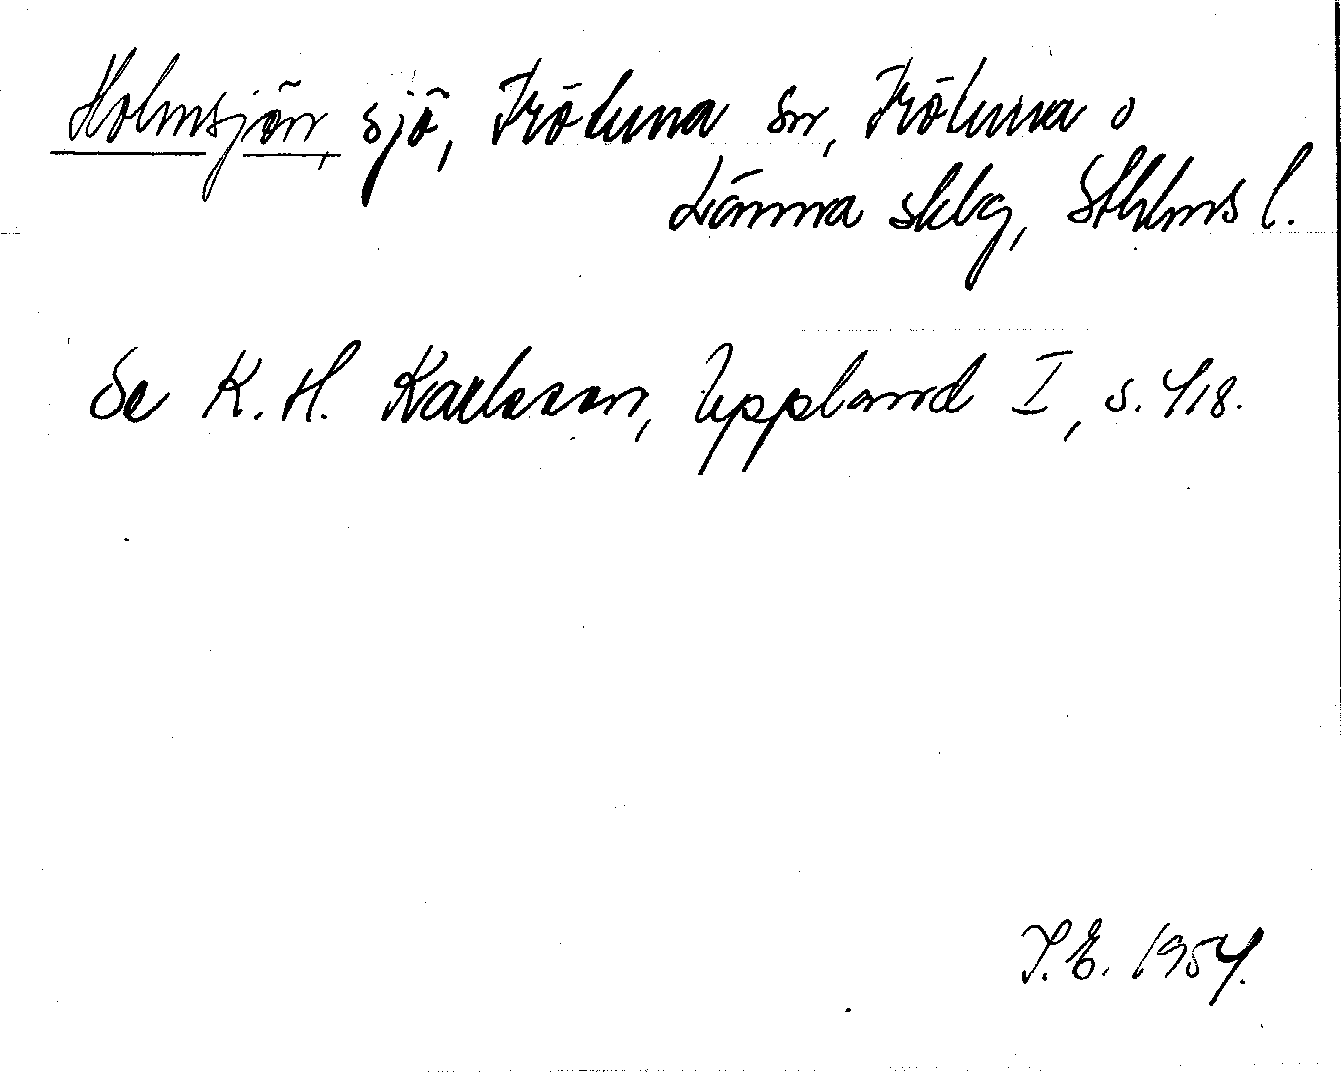 Holmsjön, sjö, Frötuna sn, Frötuna o
Länna skbg, Sthlms l.
Se K. H. Karlsson, Uppland I, s. 418.
T. E. 1954.